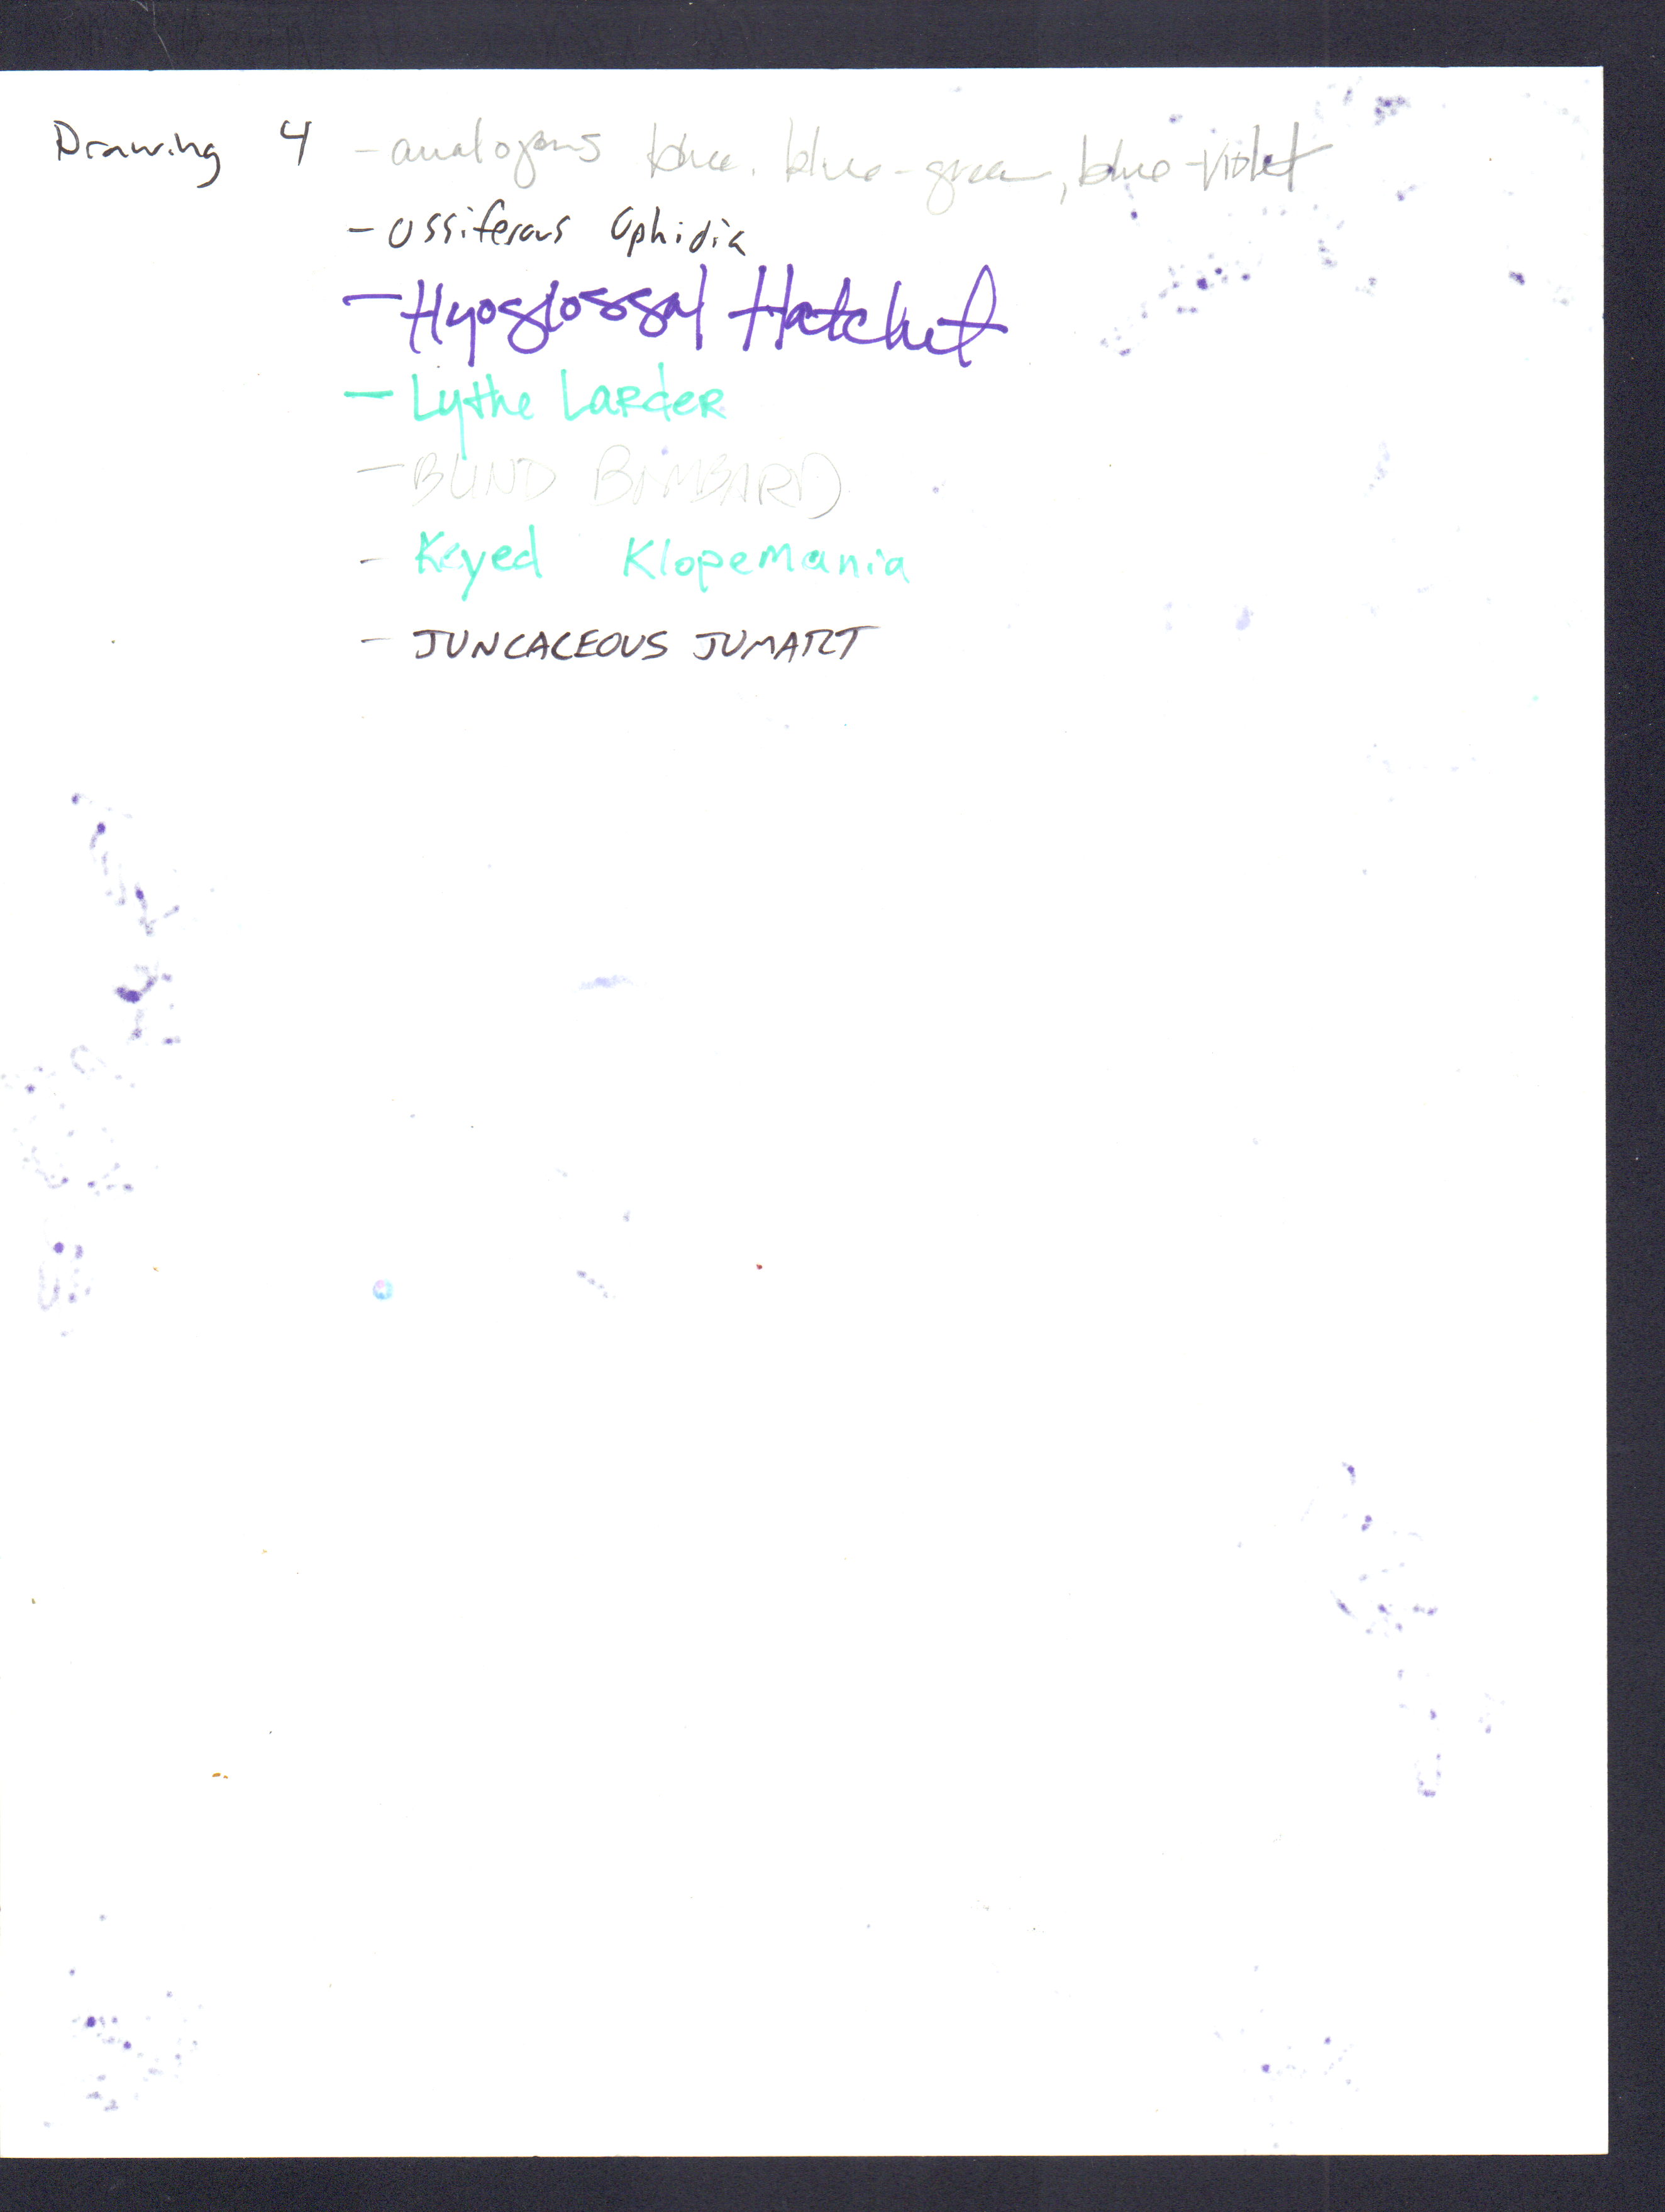 Drawing 4 - analogous blue, blue-green, blue-violet
- Ossiferous Ophidia
- Hyoglossal Hatchet
- Lythe Larder
- BLIND BOMBARD
- Keyed Klopemania
- JUNCACEOUS JUMART